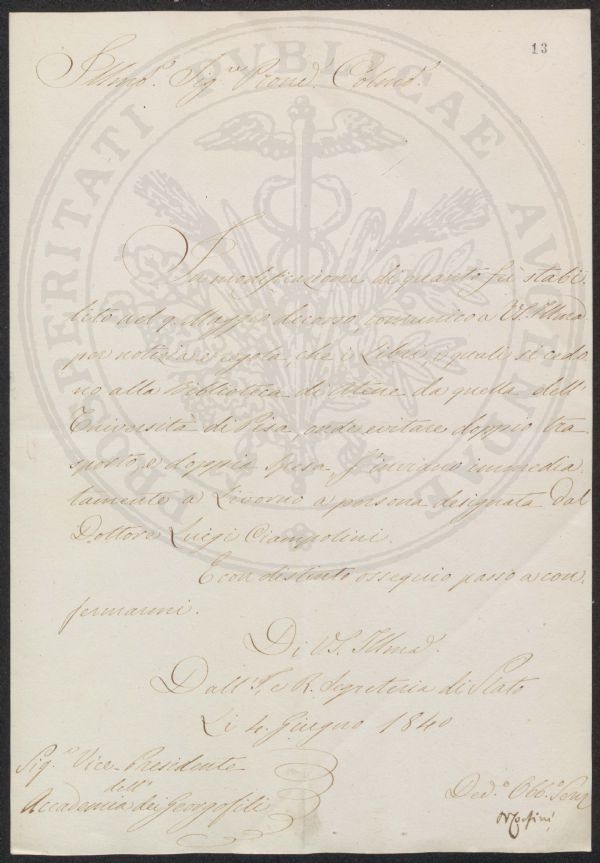 13
Illmo. Sigre. Proned. Colmo.
In modificazione di quanto fù stabi-
lito nel 9. Maggio decorso, comunico a VS. Illma
per notizia e regola, che i Libri, i quali si cedo
no alla Biblioteca di Atene da quella dell'
Università di Pisa, onde evitare doppio tra
sporto e doppia spesa, s'inviano immedia
tamente a Livorno a persona designata dal
Dottore Luigi Ciampolini.
E con distinto ossequio passo a con-
fermarmi.
Di VS. Illma.
Dall'I. e R. Segreteria di Stato
Li 4. Giugno 1840
Sigre. Vice-Presidente
dell'
Accademia dei Georgofili
Dev.o Obb.o Serv
PROSPERITATI PUBLICAE AUGENDAE